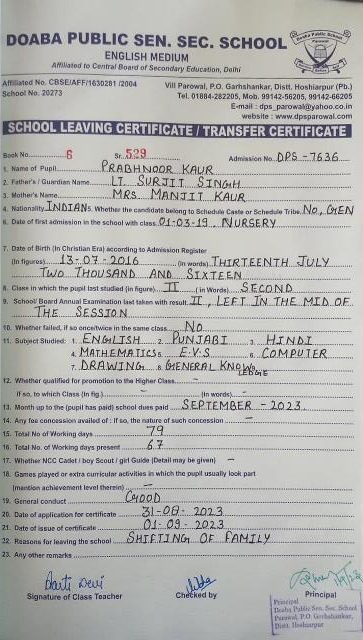 DOABA PUBLIC SEN. SEC. SCHOOL
ENGLISH MEDIUM
Affiliated to Central Board of Secondary Education, Delhi
Affiliated No. CBSE/AFF/1630281 /2004
School No. 20273
Vill Parowal, P.O. Garhshankar, Distt. Hoshiarpur (Pb.)
Tel. 01884-282205, Mob. 99142-56205, 99142-66205
E-mail : dps_parowal@yahoo.co.in
website : www.dpsparowal.com
SCHOOL LEAVING CERTIFICATE / TRANSFER CERTIFICATE
Book No. 6 Sr. 529 Admission No. DPS-7636
1. Name of Pupil PRABHNOOR KAUR
2. Father's / Guardian Name LT. SURJIT SINGH
3. Mother's Name MRS. MANJIT KAUR
4. Nationality INDIAN 5. Whether the candidate belong to Schedule Caste or Schedule Tribe NO, GEN
6. Date of first admission in the school with class 01-03-19, NURSERY
7. Date of Birth (In Christian Era) according to Admission Register
(In figures) 13-07-2016 (in words) THIRTEENTH JULY
TWO THOUSAND AND SIXTEEN
8. Class in which the pupil last studied (in figure) II (in Words) SECOND
9. School/ Board Annual Examination last taken with result II, LEFT IN THE MID OF
THE SESSION
10. Whether failed, if so once/twice in the same class NO
11. Subject Studied: 1. ENGLISH 2. PUNJABI 3. HINDI
4. MATHEMATICS 5. E.V.S 6. COMPUTER
7. DRAWING 8. GENERAL KNOW-
LEDGE
12. Whether qualified for promotion to the Higher Class –
if so, to which Class (In fig.) – (In words) –
13. Month up to the (pupil has paid) school dues paid SEPTEMBER - 2023
14. Any fee concession availed of : if so, the nature of such concession –
15. Total No of Working days 79
16. Total No. of Working days present 67
17. Whether NCC Cadet / boy Scout / girl Guide (Detail may be given) –
18. Games played or extra curricular activities in which the pupil usually look part
(mention achievement level therein) –
19. General conduct GOOD
20. Date of application for certificate 31-08-2023
21. Date of issue of certificate 01-09-2023
22. Reasons for leaving the school SHIFTING OF FAMILY
23. Any other remarks
Signature of Class Teacher Checked by Principal
Principal
Doaba Public Sen. Sec. School
Parowal, P.O. Garhshankar,
Distt. Hoshiarpur